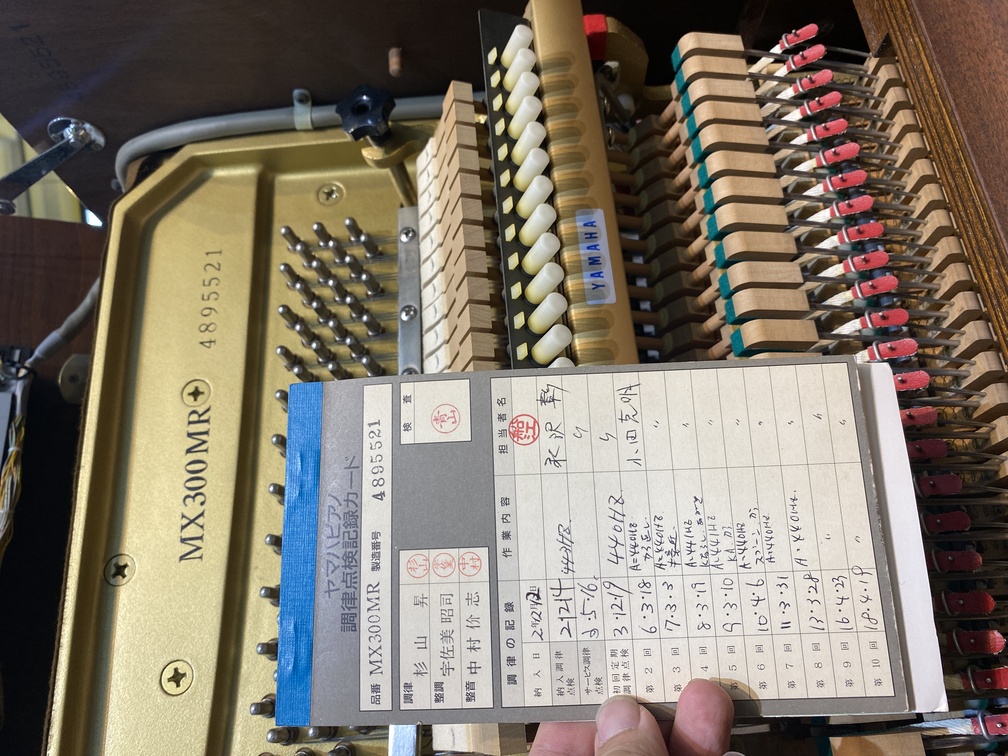 4895521
MX300MR 4895521
ヤマハピアノ
調律点検記録カード
品番 MX300MR 製造番号 4895521
調律 杉山 昇 杉山
検査
整調 宇佐美 昭司
青山
整音 中村 价志 中村
調律の記録 作業内容 担当者名
納入日 2年12月12日 船江
納入調律点検 2・12・14 443HZ 永沢
サービス調律点検 3.5.16. 〃
初回定期調律点検 3.12.19 440HZ. 〃
第2回 6.3.18 A=440HZ 小田克明
第3回 7.3.3 A=440HZ 〃
第4回 8.3.19 A=441HZ 〃
第5回 9.3.10 A=441HZ KA. 〃
第6回 10.4.6 A=440HZ スプーン 〃
第7回 11.3.31 A=440HZ. 〃
第8回 13.3.28 A=440HZ. 〃
第9回 16.4.23 〃 〃
第10回 18.4.19 〃
YAMAHA